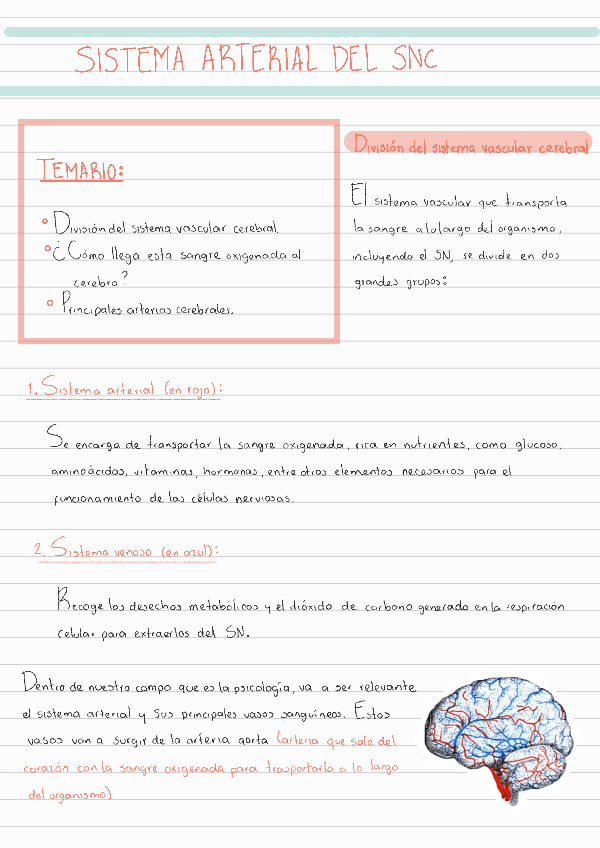 SISTEMA ARTERIAL DEL SNC
TEMARIO:
División del sistema vascular cerebral.
¿Cómo llega esta sangre oxigenada al
cerebro?
Principales arterias cerebrales.
División del sistema vascular cerebral
El sistema vascular que transporta
la sangre a lo largo del organismo,
incluyendo el SN, se divide en dos
grandes grupos:
1. Sistema arterial (en rojo):
Se encarga de transportar la sangre oxigenada, rica en nutrientes, como glucosa,
aminoácidos, vitaminas, hormonas, entre otros elementos necesarios para el
funcionamiento de las células nerviosas.
2. Sistema venoso (en azul):
Recoge los desechos metabólicos y el dióxido de carbono generado en la respiración
celular para extraerlos del SN.
Dentro de nuestro campo que es la psicología, va a ser relevante
el sistema arterial y sus principales vasos sanguíneos. Estos
vasos van a surgir de la arteria aorta (arteria que sale del
corazón con la sangre oxigenada para trasportarla a lo largo
del organismo)